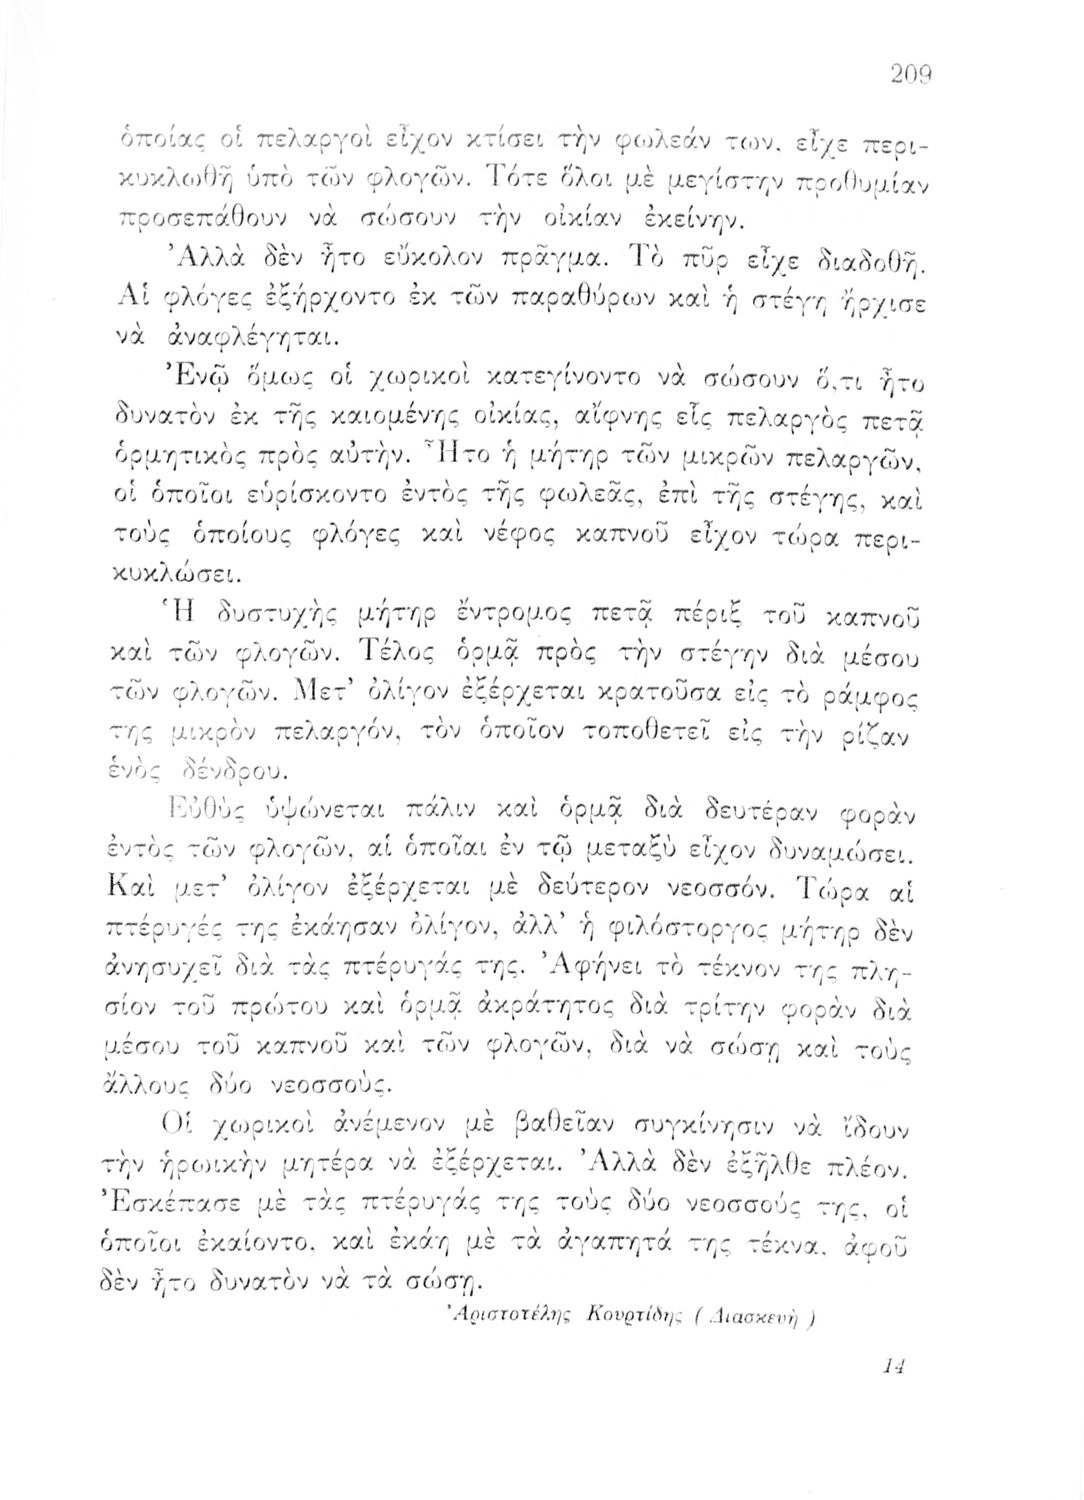 209
ὁποίας οἱ πελαργοὶ εἶχον κτίσει τὴν φωλεάν των, εἶχε περι-
κυκλωθῆ ὑπὸ τῶν φλογῶν. Τότε ὅλοι μὲ μεγίστην προθυμίαν
προσεπάθουν νὰ σώσουν τὴν οἰκίαν ἐκείνην.
Ἀλλὰ δὲν ἦτο εὔκολον πρᾶγμα. Τὸ πῦρ εἶχε διαδοθῆ.
Αἱ φλόγες ἐξήρχοντο ἐκ τῶν παραθύρων καὶ ἡ στέγη ἤρχισε
νὰ ἀναφλέγηται.
Ἐνῷ ὅμως οἱ χωρικοὶ κατεγίνοντο νὰ σώσουν ὅ,τι ἦτο
δυνατὸν ἐκ τῆς καιομένης οἰκίας, αἴφνης εἷς πελαργὸς πετᾷ
ὁρμητικὸς πρὸς αὐτήν. Ἦτο ἡ μήτηρ τῶν μικρῶν πελαργῶν,
οἱ ὁποῖοι εὑρίσκοντο ἐντὸς τῆς φωλεᾶς, ἐπὶ τῆς στέγης, καὶ
τοὺς ὁποίους φλόγες καὶ νέφος καπνοῦ εἶχον τώρα περι-
κυκλώσει.
Ἡ δυστυχὴς μήτηρ ἔντρομος πετᾷ πέριξ τοῦ καπνοῦ
καὶ τῶν φλογῶν. Τέλος ὁρμᾷ πρὸς τὴν στέγην διὰ μέσου
τῶν φλογῶν. Μετ’ ὀλίγον ἐξέρχεται κρατοῦσα εἰς τὸ ράμφος
της μικρὸν πελαργόν, τὸν ὁποῖον τοποθετεῖ εἰς τὴν ρίζαν
ἑνὸς δένδρου.
Εὐθὺς ὑψώνεται πάλιν καὶ ὁρμᾷ διὰ δευτέραν φορὰν
ἐντὸς τῶν φλογῶν, αἱ ὁποῖαι ἐν τῷ μεταξὺ εἶχον δυναμώσει.
Καὶ μετ’ ὀλίγον ἐξέρχεται μὲ δεύτερον νεοσσόν. Τώρα αἱ
πτέρυγές της ἐκάησαν ὀλίγον, ἀλλ’ ἡ φιλόστοργος μήτηρ δὲν
ἀνησυχεῖ διὰ τὰς πτέρυγάς της. Ἀφήνει τὸ τέκνον της πλη-
σίον τοῦ πρώτου καὶ ὁρμᾷ ἀκράτητος διὰ τρίτην φορὰν διὰ
μέσου τοῦ καπνοῦ καὶ τῶν φλογῶν, διὰ νὰ σώσῃ καὶ τοὺς
ἄλλους δύο νεοσσούς.
Οἱ χωρικοὶ ἀνέμενον μὲ βαθεῖαν συγκίνησιν νὰ ἴδουν
τὴν ἡρωικὴν μητέρα νὰ ἐξέρχεται. Ἀλλὰ δὲν ἐξῆλθε πλέον.
Ἐσκέπασε μὲ τὰς πτέρυγάς της τοὺς δύο νεοσσούς της, οἱ
ὁποῖοι ἐκαίοντο, καὶ ἐκάη μὲ τὰ ἀγαπητά της τέκνα, ἀφοῦ
δὲν ἦτο δυνατὸν νὰ τὰ σώσῃ.
Ἀριστοτέλης Κουρτίδης ( Διασκευὴ )
14